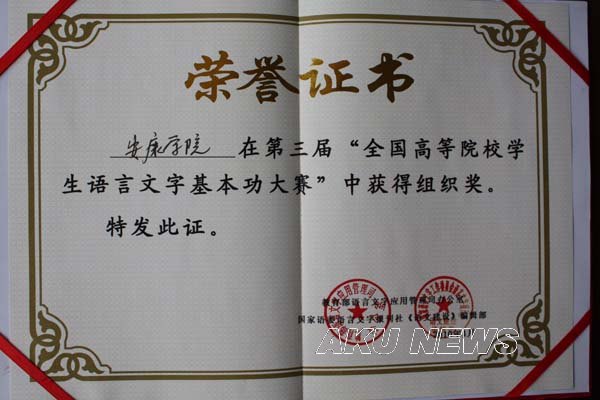 荣誉证书
安康学院 在第三届“全国高等院校学
生语言文字基本功大赛”中获得组织奖。
特发此证。
教育部语言文字应用管理司
国家语委语言文字报刊社《语文建设》编辑部
AKU NEWS